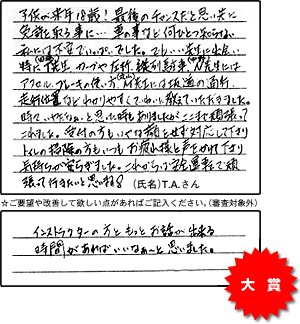 子供が来年18歳!最後のチャンスだと思い先に
免許を取る事に… 車の事など何ひとつ知らない
私には不安でいっぱいでした。でもいい先生に出会い
特に 先生 カーブや左折、縦列駐車 先生には
アクセル、ブレーキの使い方、M先生には坂道の通行
走行位置などわかりやすくていねいに教えていただきました。
時て、やだなぁ〜と思った時もありましたがここまで頑張って
これました。受付の方もいやな顔ひとつせず対応して下さり
トイレの掃除の方もいつもお疲れ様と声をかけて下さり
気持ちが安らぎました。これからは安全運転で頑
張って行きたいと思います (氏名)T.A.さん
☆ご要望や改善して欲しい点があればご記入ください。(審査対象外)
インストラクターの方ともっとお話が出来る
時間があればいいなぁ〜と思いました。
大賞